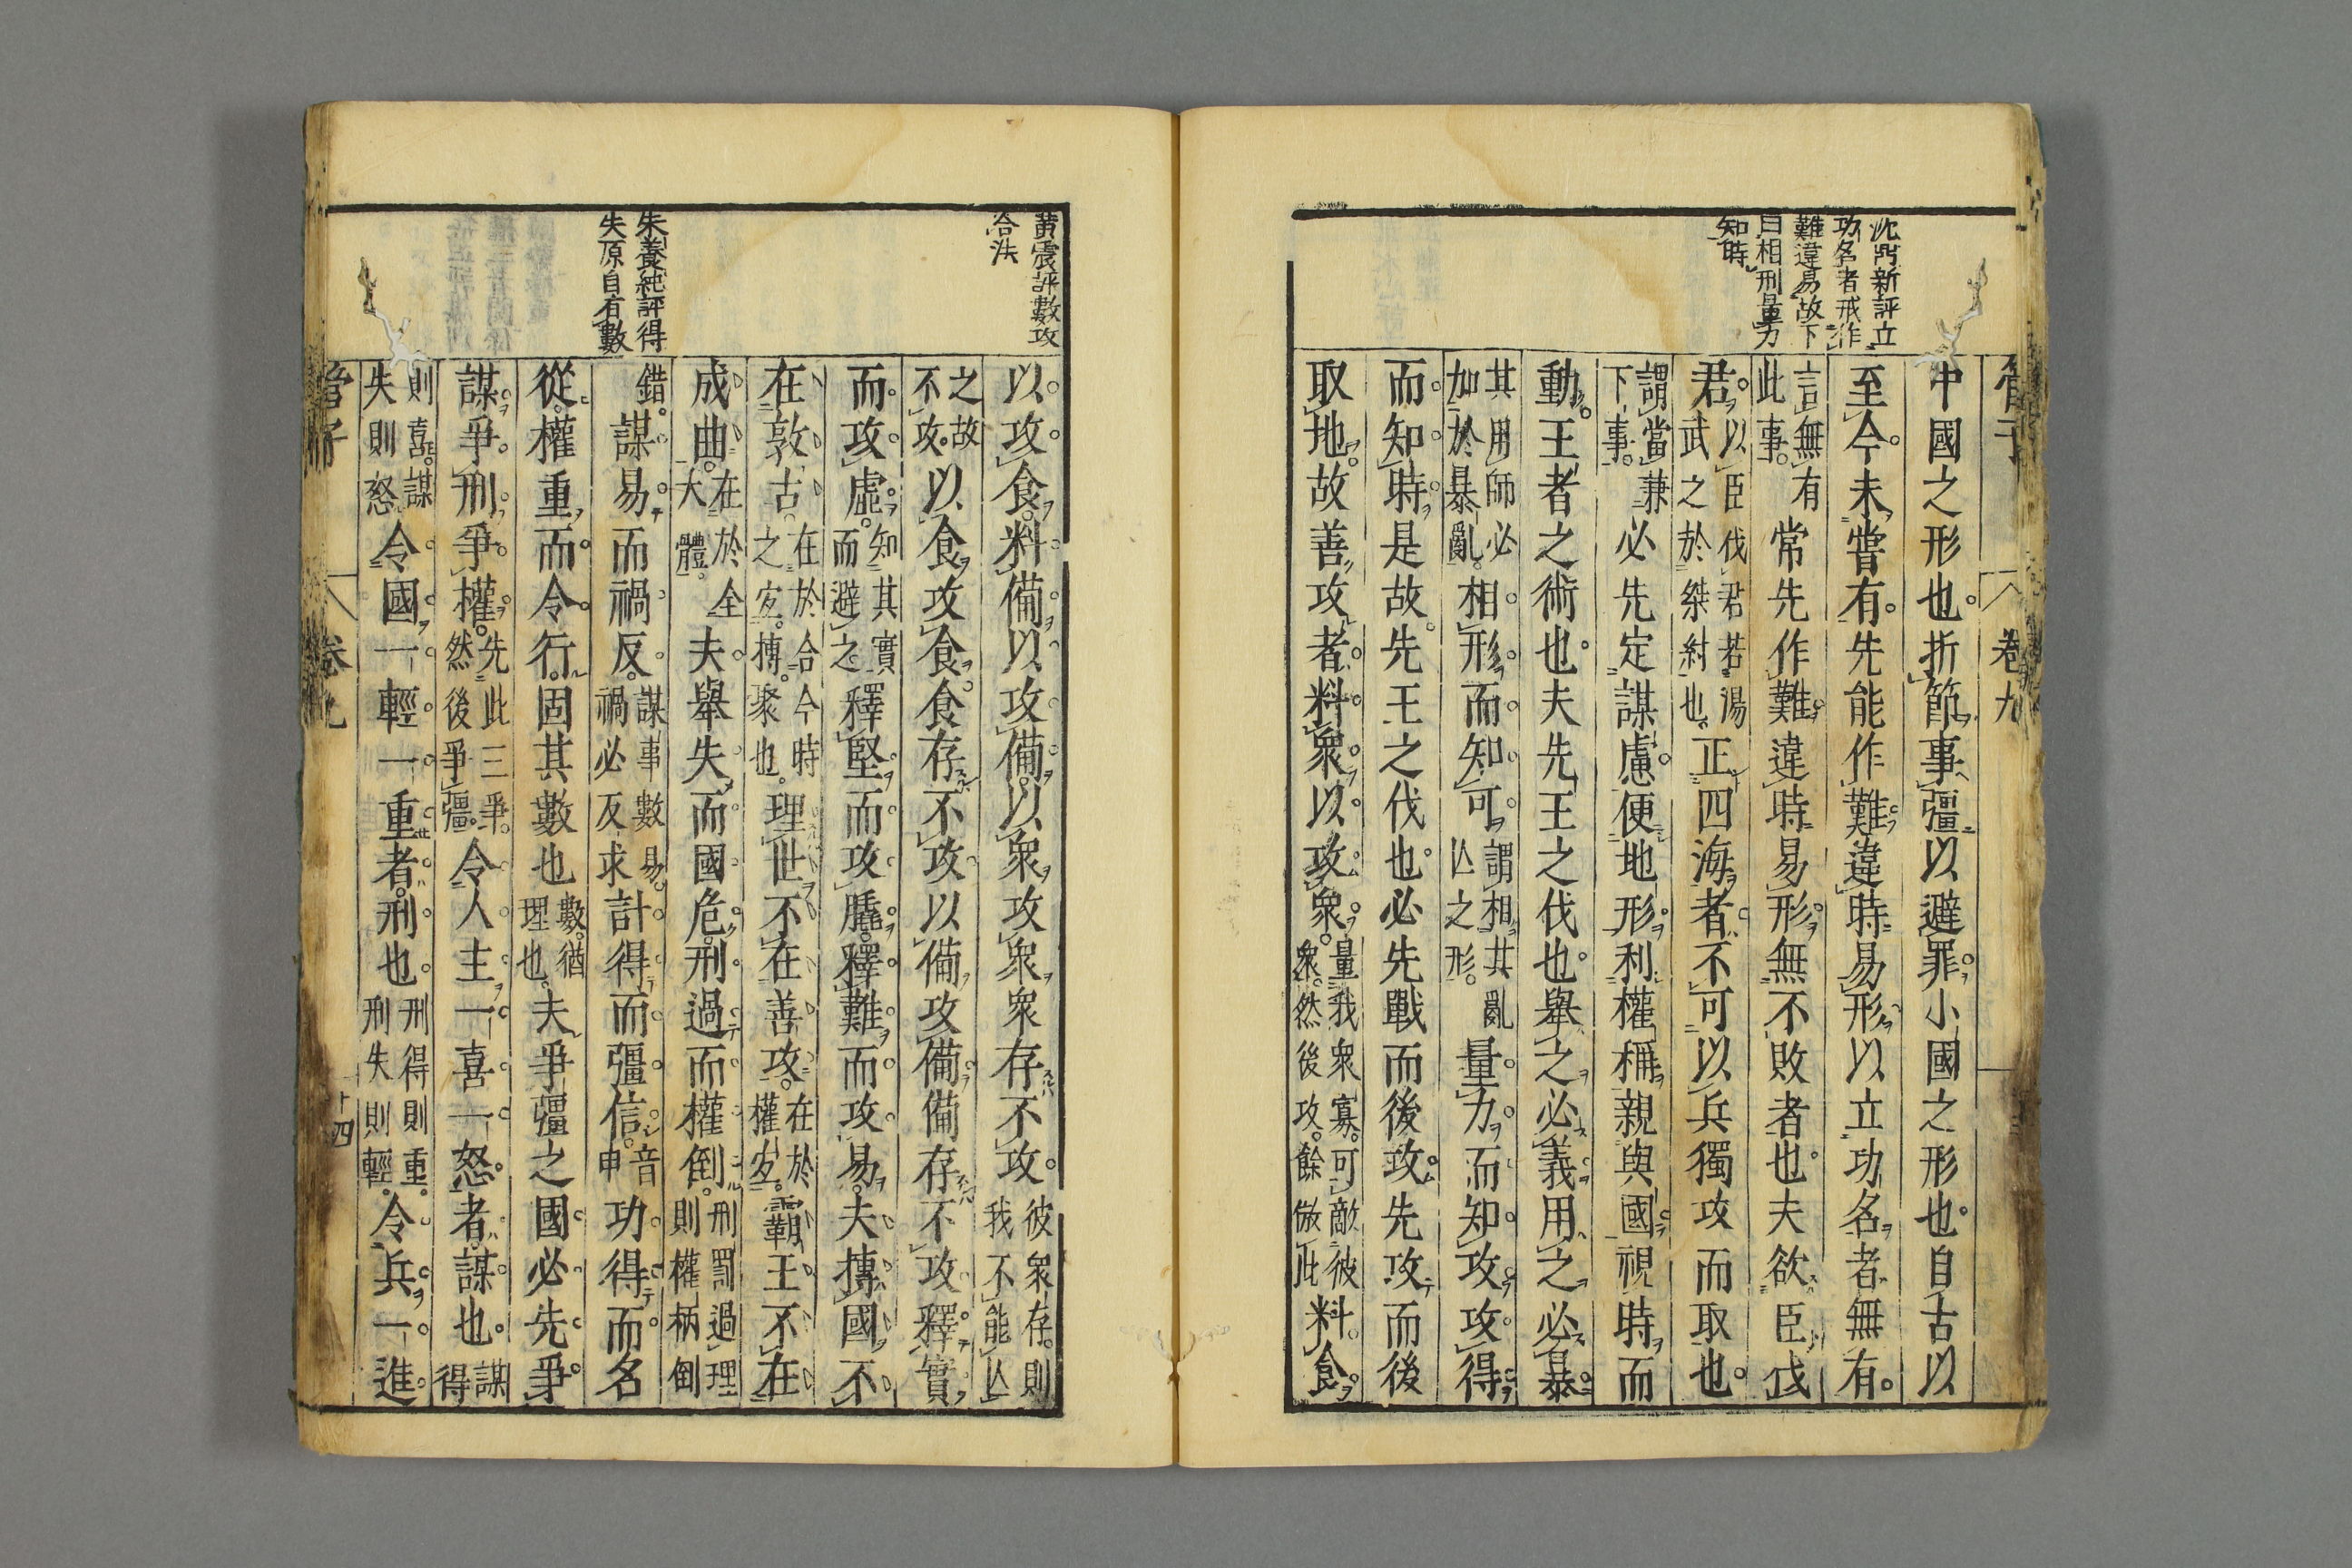 管子
卷九
沈鼎新評立
功名者戒作
難違易故下
曰相刑量力
知時
中國之形也折節事彊以避罪小國之形也自古以
至今未嘗有先能作難違時易形以立功名者無有
言無有此事常先作難違時易形無不敗者也夫欲臣伐
君以臣伐君若湯武之於桀紂也正四海者不可以兵獨攻而取也
謂當兼下事必先定謀慮便地形利權稱親與國視時而
動王者之術也夫先王之伐也舉之必義用之必暴
其用師必加於暴亂相形而知可謂相其亂亾之形量力而知攻攻得
而知時是故先王之伐也必先戰而後攻先攻而後
取地故善攻者料衆以攻衆量我衆寡可敵彼衆然後攻餘倣此料食
黃震評數攻
合法
以攻食料備以攻備以衆攻衆衆存不攻彼衆存則我不能亾
之故不攻以食攻食食存不攻以備攻備備存不攻釋實
而攻虛知其實而避之釋堅而攻膬釋難而攻易夫摶國不
在敦古在於合今時之宐摶聚也理世不在善攻在於權宐霸王不在
成曲在於全大體夫舉失而國危刑過而權倒刑罰過理則權柄倒
朱養純評得
失原自有數
錯謀易而禍反謀事數易禍必反求計得而彊信音申功得而名
從權重而令行固其數也數猶理也夫爭彊之國必先爭
謀爭刑爭權先此三爭然後爭彊令人主一喜一怒者謀也謀得
則喜謀失則怒令國一輕一重者刑也刑得則重刑失則輕令兵一進
管子
卷九
十四